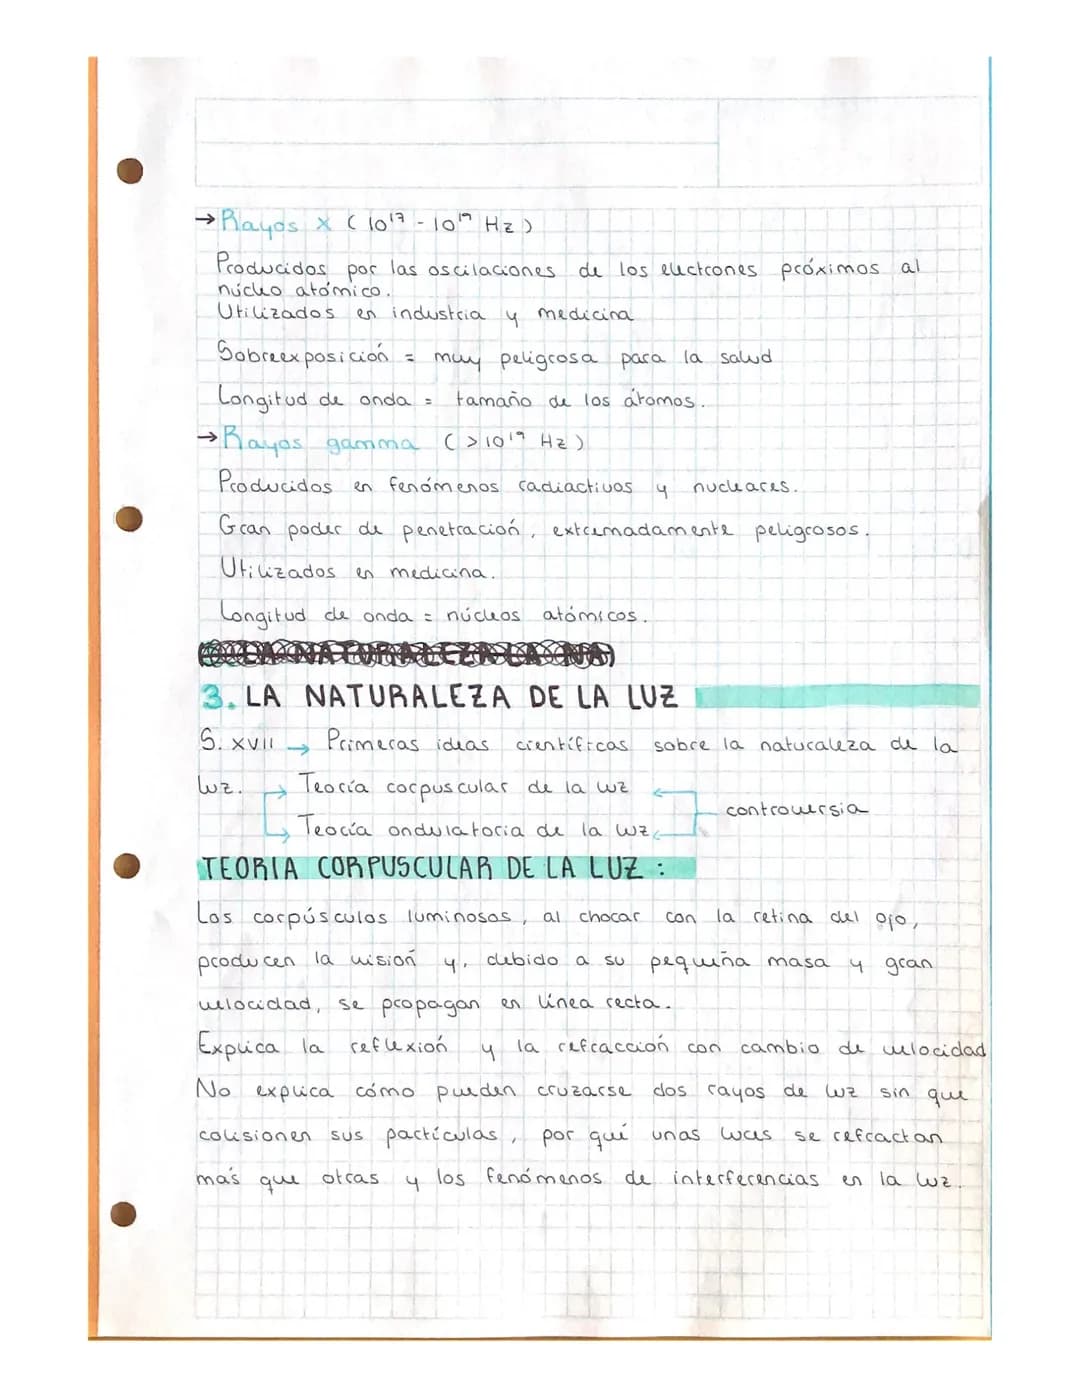 →Rayos x (10¹⁷ - 10¹⁹ Hz)
Producidos por las oscilaciones de los electrones próximos al
núcleo atómico.
Utilizados en industria y medicina
Sobreexposición = muy peligrosa para la salud
Longitud de onda = tamaño de los átomos.
→Rayos gamma (>10¹⁹ Hz)
Producidos en fenómenos radiactivos y nucleares.
Gran poder de penetración, extremadamente peligrosos.
Utilizados en medicina.
Longitud de onda = núcleos atómicos.
LA NATURALEZA LA NA
3. LA NATURALEZA DE LA LUZ
S. XVII → Primeras ideas científicas sobre la naturaleza de la
luz. → Teoría corpuscular de la luz
controversia
→ Teoría ondulatoria de la luz
TEORIA CORPUSCULAR DE LA LUZ :
Los corpúsculos luminosos, al chocar con la retina del ojo,
producen la visión y, debido a su pequeña masa y gran
velocidad, se propagan en línea recta.
Explica la reflexión y la refracción con cambio de velocidad
No explica cómo pueden cruzarse dos rayos de luz sin que
colisionen sus partículas, por qué unas luces se refractan
más que otras y los fenómenos de interferencias en la luz.